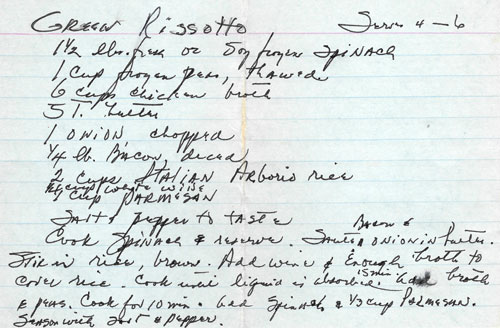 Green Rissotto Serves 4-6
1½ lbs. fresh or 50z frozen Spinach
1 Cup frozen peas, thawed
6 cups chicken broth
5 T. butter
1 onion chopped
¼ lb. Bacon, diced
2 cups Italian Arborio rice
cup white wine
1 cup Parmesan
Salt & pepper to taste
Cook Spinach & reserve. Sauteé Bacon & onion in butter.
Stir in rice, brown. Add wine & Enough broth to
cover rice. Cook until liquid is absorbed 15 min. broth
& peas. Cook for 10 min. Add Spinach & ⅓ cup Parmesan.
Season with Salt & pepper.